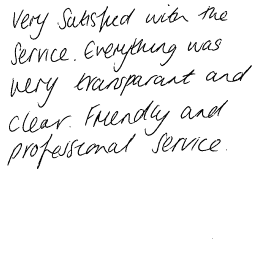 Very Satisfied with the
Service. Everything was
very transparant and
clear. Friendly and
professional Service.